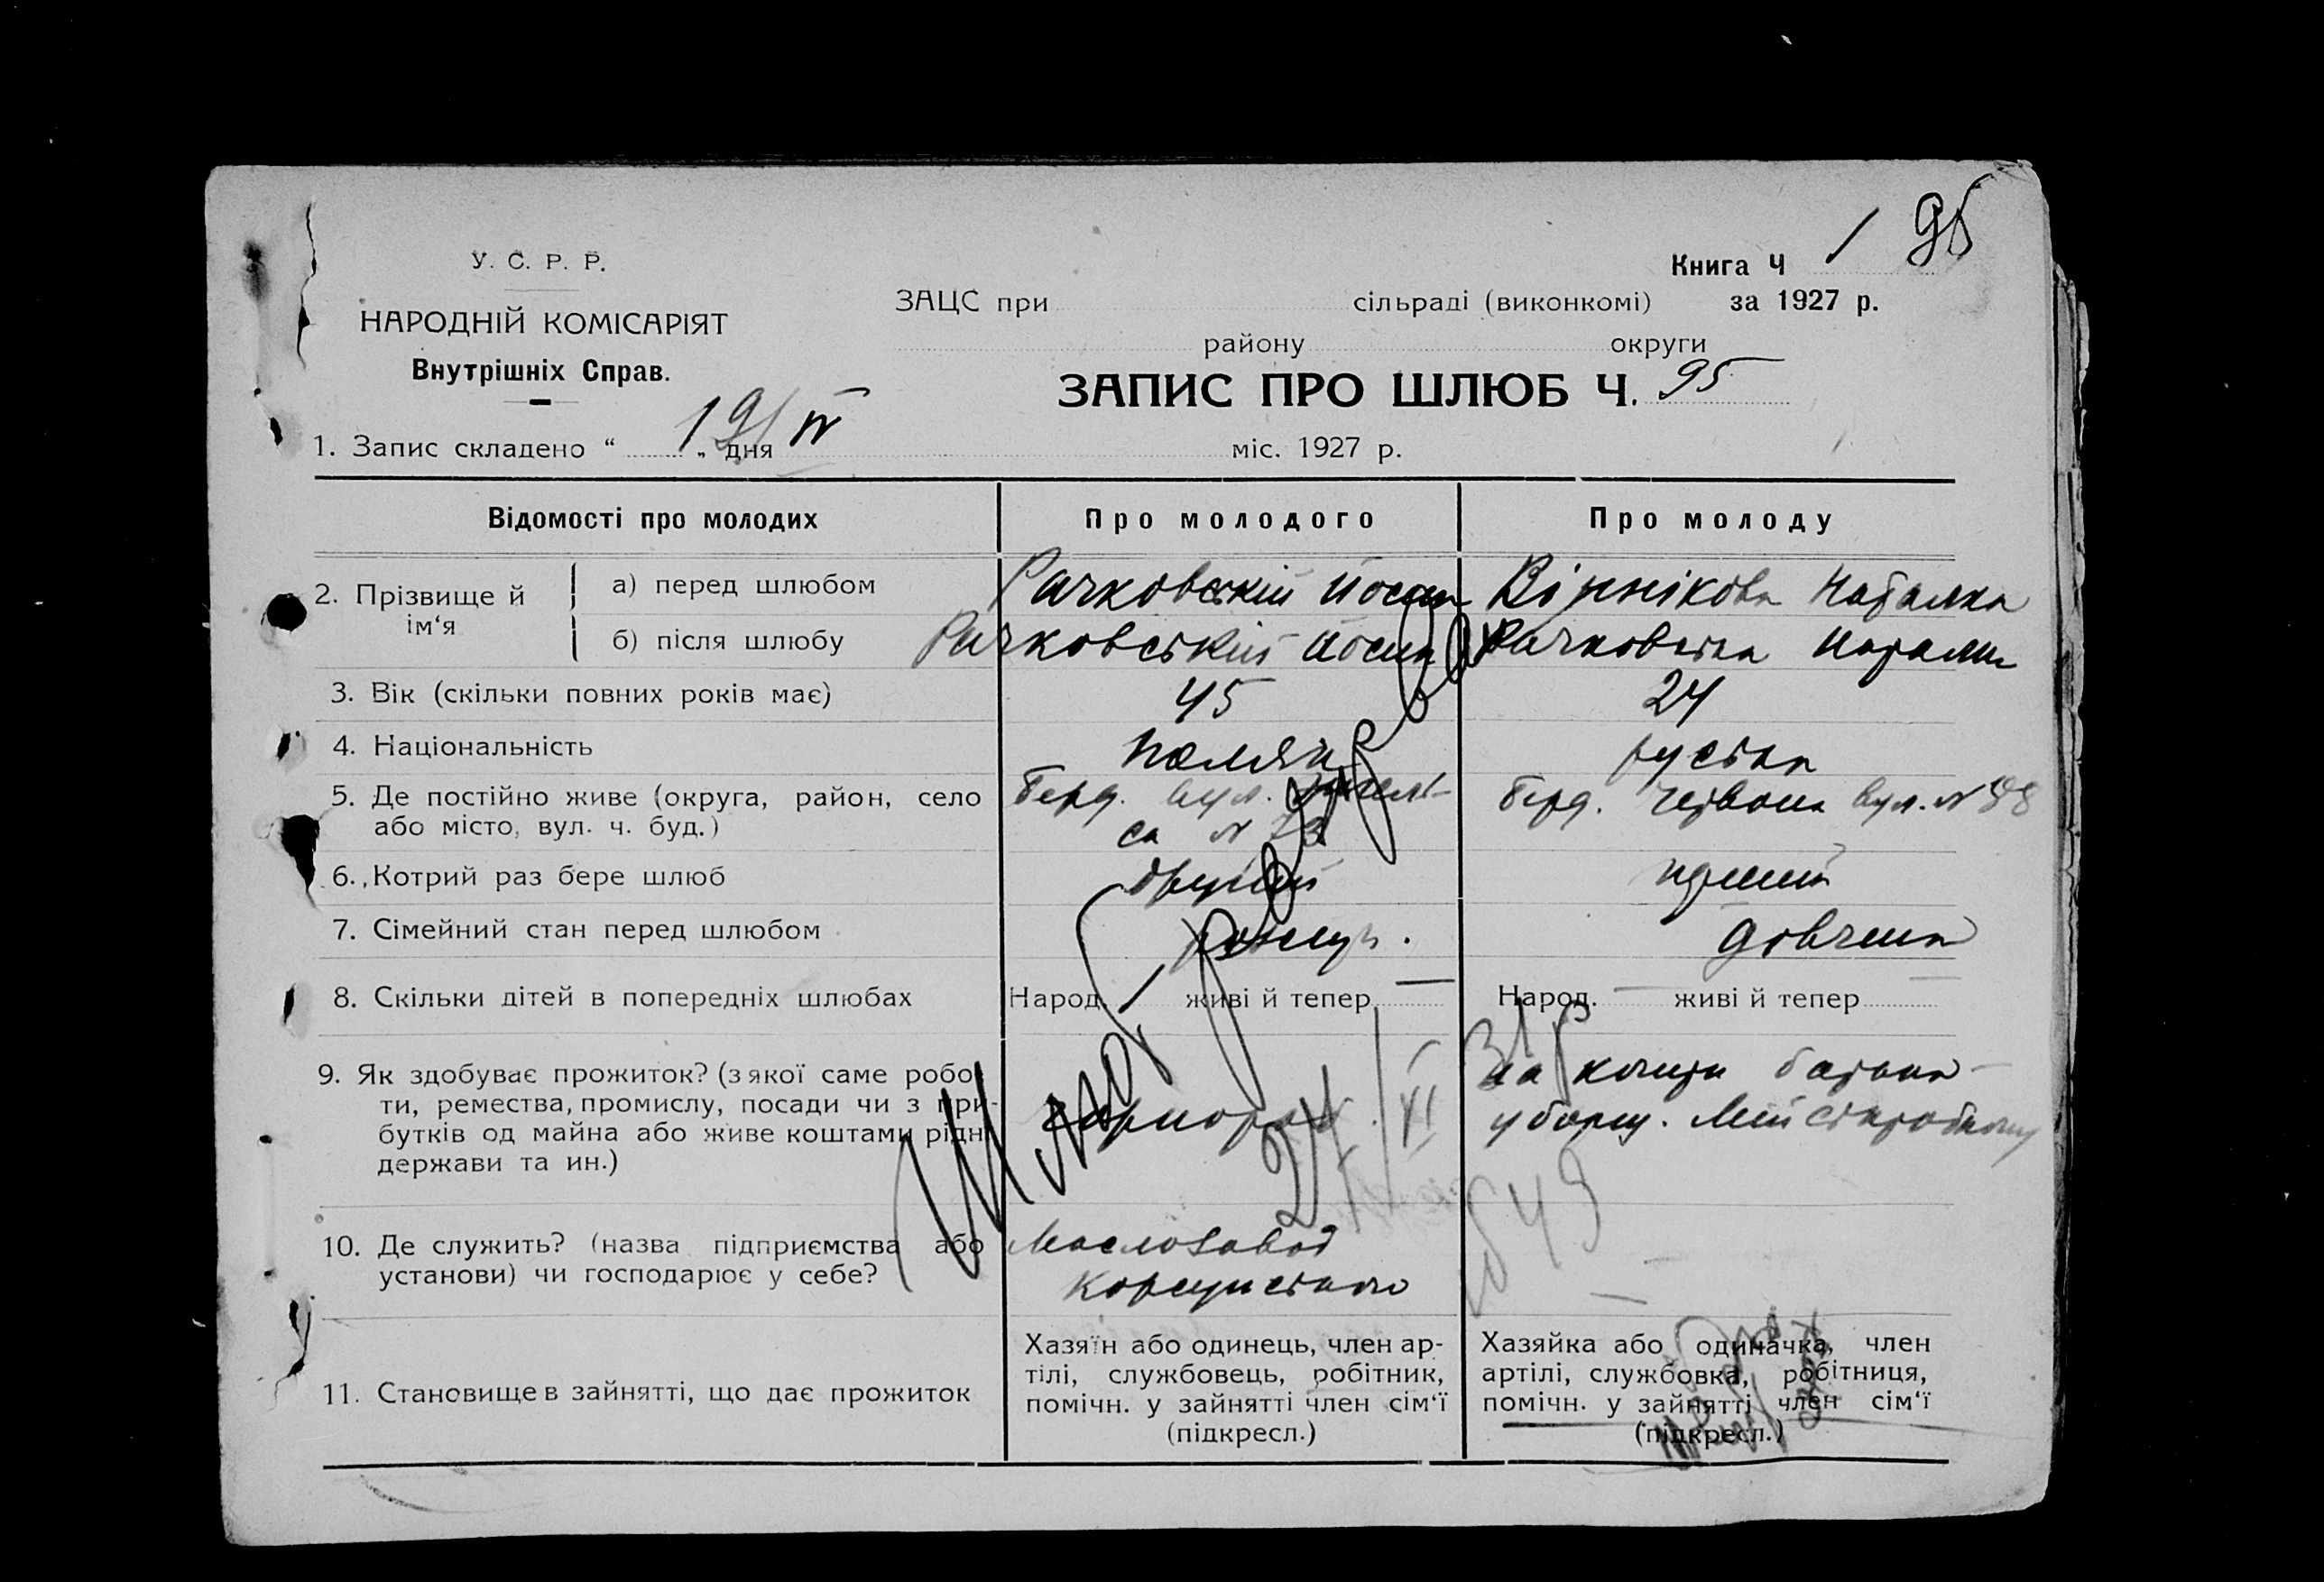 У. С. Р. Р.
НАРОДНІЙ КОМІСАРІЯТ
Внутрішніх Справ.
Книга Ч 1 95
ЗАЦС при сільраді (виконкомі) за 1927 р.
району округи
ЗАПИС ПРО ШЛЮБ Ч. 95
1. Запис складено “ 19 „ дня IV міс. 1927 р.
Відомості про молодих Про молодого Про молоду
2. Прізвище й ім‘я
а) перед шлюбом Рачковській Йосип Віннікова Наталка
б) після шлюбу Рачковській Йосип Рачковська Наталка
3. Вік (скільки повних років має) 45 24
4. Національність поляк руська
5. Де постійно живе (округа, район, село Берд. вул. Берд. Червона вул. №
або місто, вул. ч. буд.) са № 73
6. Котрий раз бере шлюб другий перший
7. Сімейний стан перед шлюбом дівчина
8. Скільки дітей в попередніх шлюбах Народ. 1 живі й тепер — Народ. — живі й тепер —
9. Як здобуває прожиток? (з якої саме робо- на кошти батька
ти, ремества, промислу, посади чи з при-
бутків од майна або живе коштами рідн.
держави та ин.)
24/XI
10. Де служить? (назва підприємства або Маслозавод
установи) чи господарює у себе? —
11. Становище в зайнятті, що дає прожиток
Хазяїн або одинець, член ар-
тілі, службовець, робітник,
помічн. у зайнятті член сім‘ї
(підкресл.)
Хазяйка або одиначка, член
артілі, службовка, робітниця,
помічн. у зайнятті член сім‘ї
(підкресл.)